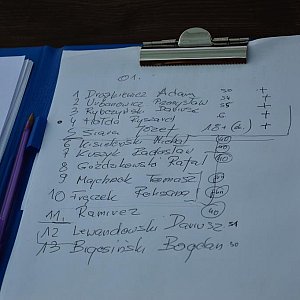 01.
1 Drążkiewicz Adam 50 +
2 Urbanowicz Przemysław 54 +
3 Rybczyński Dariusz 55 +
4 Hałda Ryszard 6 +
5 Siara Józef 18+ +
6 Kisielewski Michał 40
7 Kusyk Radosław 40
8 Goździkowski Rafał 40
9 Majchrzak Tomasz
10 Frączek
11. Ramirez 40
12 Lewandowski Dariusz 51
13 Bigosiński Bogdan 50